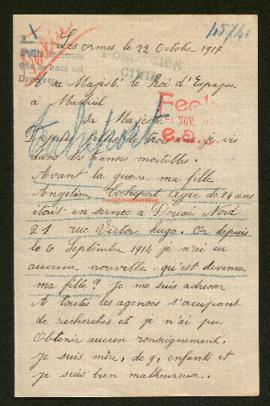 45741
Les ormes le 22 Octobre 1917
POBLACIÓN
CIVIL
A sa Majesté le Roi d'Espagne
à Madrid
Sa Majesté
NOV
Depuis plus de trois ans je vis
dans les transes mortelles.
Avant la guerre, ma fille
Angeline âgée de 24 ans
était en service à Douai Nord
21 rue Victor hugo. Or depuis
le 6 Septembre 1914 je n'ai eu
aucune nouvelle qu'est devenue
ma fille? Je me suis adressée
A toutes les agences s'occupant
de recherches et je n'ai pu
Obtenir aucun renseignement.
Je suis mère, de 9, enfants et
je suis bien malheureuse..